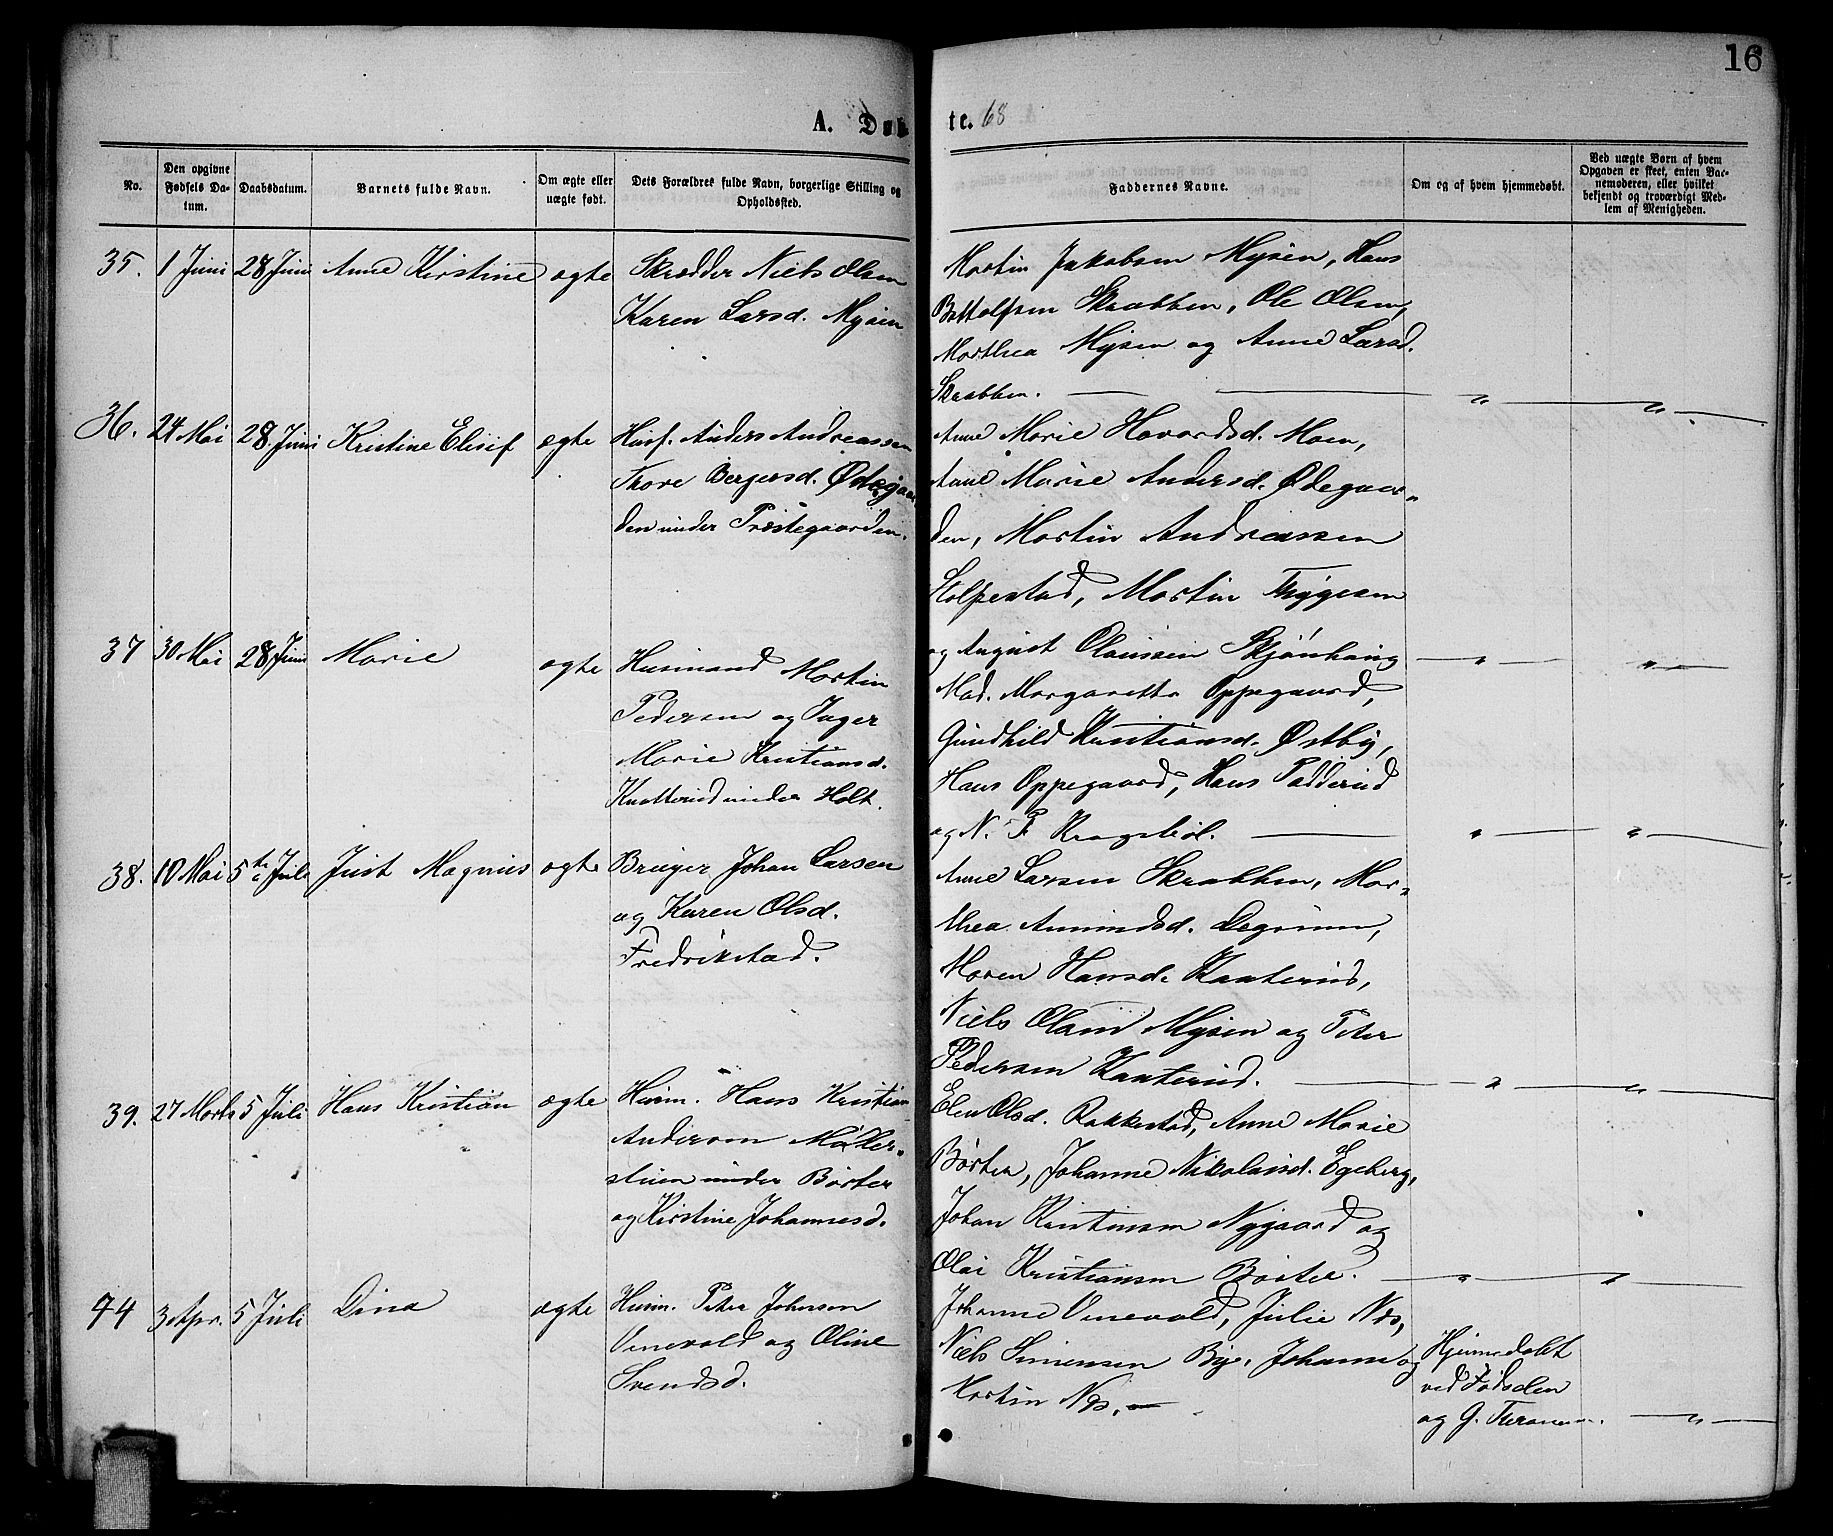 16
A. Døbte. 68
No.
Den opgivne Fødsels Datum.
Daabsdatum.
Barnets fulde Navn.
Om ægte eller uægte født.
Dets Forældres fulde Navn, borgerlige Stilling og Opholdssted.
Faddernes Navne.
Om og af hvem hjemmedøbt.
Ved uægte Børn af hvem Opgaven er skeet, enten Barnemoderen, eller hvilket bekjendt og troværdigt Medlem af Menigheden.
35. 1 Juni 28 Juni Anne Kirstine ægte
Skrædder Niels Olsen
Karen Larsd. Mysen
Martin Jakobsen Mysen, Hans
Skrabben, Ole Olsen,
Marthea Mysen og Anne Larsd.
Skrabben. — — " — " —
36. 24 Mai 28 Juni Kristine Elisif ægte
Husf. Anders Andreassen
Thore Bergersd. Ødegaar
den under Præstegaarden.
Anne Marie Havardsd. Moen,
Anne Marie Andersd. Ødegaar-
den, Martin Andreassen
Stolpestad, Martin Thygesen
og August Olaussen Skjønhaug — " — " —
37 30 Mai 28 Juni Marie ægte
Husmand Martin
Pedersen og Inger
Marie Kristiansd.
Knatterud under Holt.
Mad. Margarette Oppegaard,
Gundhild Kristiansd. Østby,
Hans Oppegaard, Hans Padderud
og N. F. Krogstöl. — " — " —
38. 10 Mai 5te Juli Just Magnus ægte
Bruger Johan Larsen
og Karen Olsd.
Fredrikstad.
Anne Larsen Skrabben, Mar-
thea Amundsd. Degrum,
Maren Hansd. Kanterud,
Niels Olsen Mysen og Peter
Pedersen Kanterud. — " — " —
39. 27 Marts 5 Juli Hans Kristian ægte
Husm. Hans Kristian
Andersen
stuen under Børter
og Kirstine Johannesd.
Elen Olsd. Rakkestad, Anne Marie
Børter, Johanne Nikolaisd. Egeberg,
Johan Kristiansen Nygaard og
Olai Kristiansen Børter. — " — " —
44 3 Apr. 5 Juli Dina ægte
Husm. Peter Johnsen
Venevold og Oline
Svendsd.
Johanne Venevold, Julie Næs,
Niels Simensen Bye, Johannes og
Martin Næs. —
Hjemmedøbt
ved Fødselen
og G. — " —